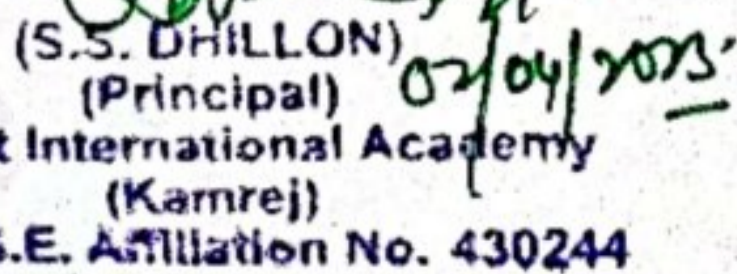 (S.S. DHILLON)
(Principal) 02/04/2023
t International Academy
(Kamrej)
.E. Affiliation No. 430244